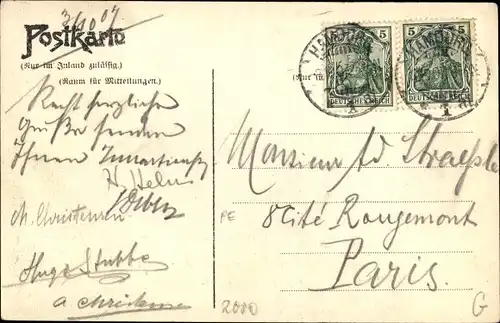 3/10 07
Postkarte
(Nur im Inland zulässig.)
(Raum für Mitteilungen.)
Recht herzliche
Grüße senden
Ihnen
H. Helms
M. Christensen
Hugo Stubbe
A Christensen
(Nur
5 5
HAMBURG HAMBURG
DEUTSCHES REICH DEUTSCHES REICH
Monsieur Ad
8 Cité Rougemont
Paris.
PE
2000
G